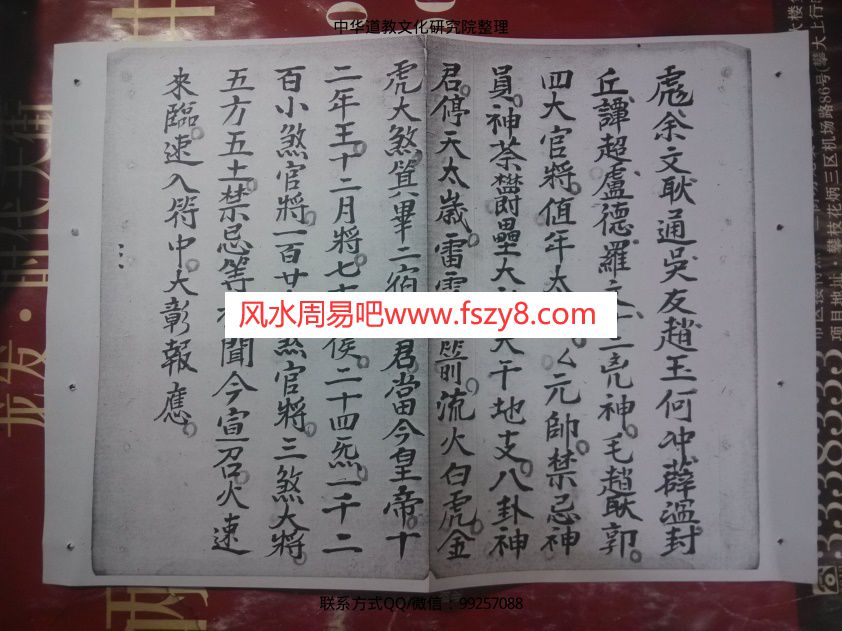 中华道教文化研究院整理
彪余文耿通吳友趙玉何冲薛溫封
丘譚超盧德羅 神毛趙耿郭
四大官將值年太 元帥禁忌神
員神荼鬱壘大 天干地支八卦神
君停天太歲雷 流火白虎金
虎大煞箕畢二宿 君當今皇帝十
二年王十二月將七 侯二十四炁一千二
百小煞官將一百廿 煞官將三煞大將
五方五土禁忌等 聞今宣召火速
來臨速入符中大彰報應
风水周易吧www.fszy8.com
联系方式QQ/微信：99257088
龙发·时代大街
攀枝花炳三区机场路86号(攀大上行
项目地址
3338333